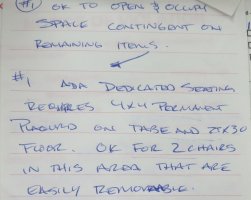 #1 OK TO OPEN & OCCUPY
SPACE CONTINGENT ON
REMAINING ITEMS.
#1 ADA DEDICATED SEATING
REQUIRES 4X4 PERMANENT
PLACARD ON TABLE AND
FLOOR. OK FOR 2 CHAIRS
IN THIS AREA THAT ARE
EASILY REMOVABLE.